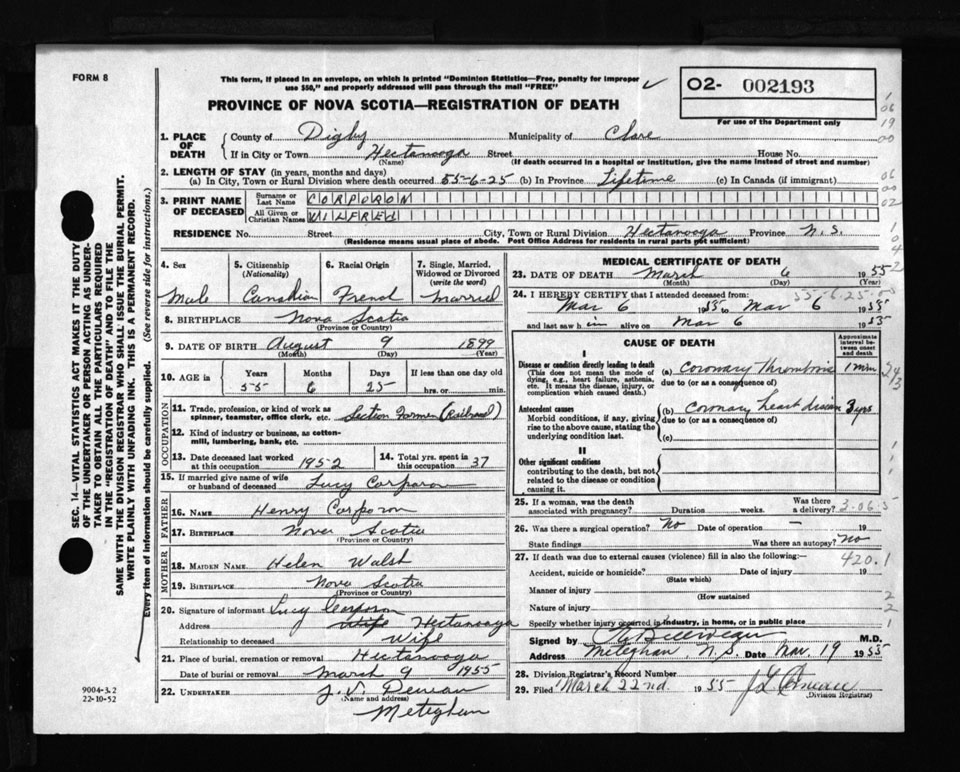 FORM 8
This form, if placed in an envelope, on which is printed "Dominion Statistics—Free, penalty for improper
use $50," and properly addressed will pass through the mail "FREE"
PROVINCE OF NOVA SCOTIA—REGISTRATION OF DEATH
02- 002193
For use of the Department only
1. PLACE OF DEATH
County of Digby Municipality of Clare
If in City or Town Hectanooga Street House No.
(Name) (If death occurred in a hospital or institution, give the name instead of street and number)
2. LENGTH OF STAY (in years, months and days)
(a) In City, Town or Rural Division where death occurred 55-6-25 (b) In Province Lifetime (c) In Canada (if immigrant)
3. PRINT NAME OF DECEASED
Surname or Last Name CORPORON
All Given or Christian Names WILFRED
RESIDENCE No. Street City, Town or Rural Division Hectanooga Province N.S.
(Residence means usual place of abode. Post Office Address for residents in rural parts not sufficient)
4. Sex
Male
5. Citizenship
(Nationality)
Canadian
6. Racial Origin
French
7. Single, Married, Widowed or Divorced
(write the word)
Married
8. BIRTHPLACE Nova Scotia
(Province or Country)
9. DATE OF BIRTH August 9 1899
(Month) (Day) (Year)
10. AGE in
Years Months Days If less than one day old
55 6 25 hrs. or min.
OCCUPATION
11. Trade, profession, or kind of work as spinner, teamster, office clerk, etc. Section Forman (Railroad)
12. Kind of industry or business, as cotton-mill, lumbering, bank, etc.
13. Date deceased last worked at this occupation 1952
14. Total yrs. spent in this occupation 37
15. If married give name of wife or husband of deceased Lucy Corporon
FATHER
16. NAME Henry Corporon
17. BIRTHPLACE Nova Scotia
(Province or Country)
MOTHER
18. MAIDEN NAME Helen Walsh
19. BIRTHPLACE Nova Scotia
(Province or Country)
20. Signature of informant Lucy Corporon
Address Wife Hectanooga
Relationship to deceased Wife
21. Place of burial, cremation or removal Hectanooga
Date of burial or removal March 9 1955
22. UNDERTAKER J. V.
(Name and address)
Meteghan
MEDICAL CERTIFICATE OF DEATH
23. DATE OF DEATH March 6 1955
(Month) (Day) (Year)
24. I HEREBY CERTIFY that I attended deceased from
Mar 6 1955 to Mar 6 1955
and last saw him alive on Mar 6 1955
CAUSE OF DEATH
Approximate interval between onset and death
I
Disease or condition directly leading to death
(This does not mean the mode of dying, e.g., heart failure, asthenia, etc. It means the disease, injury, or complication which caused death.)
(a) Coronary thrombosis 1 min
due to (or as a consequence of)
Antecedent causes
Morbid conditions, if any, giving rise to the above cause, stating the underlying condition last.
(b) Coronary heart disease 3 yrs
due to (or as a consequence of)
(c)
II
Other significant conditions
contributing to the death, but not related to the disease or condition causing it.
25. If a woman, was the death associated with pregnancy? Duration weeks. Was there a delivery?
26. Was there a surgical operation? No Date of operation — 19
State findings Was there an autopsy? No
27. If death was due to external causes (violence) fill in also the following:—
420.1
Accident, suicide or homicide? Date of injury 19
(State which)
Manner of injury
(How sustained
Nature of injury
Specify whether injury occurred in industry, in home, or in public place
Signed by M.D.
Address Meteghan, N.S. Date Mar. 19 1955
28. Division Registrar's Record Number
29. Filed March 22nd 1955
(Division Registrar)
SEC. 14—VITAL STATISTICS ACT MAKES IT THE DUTY
OF THE UNDERTAKER OR PERSON ACTING AS UNDER-
TAKER TO OBTAIN ALL THE PARTICULARS REQUIRED
IN THE "REGISTRATION OF DEATH" AND TO FILE THE
SAME WITH THE DIVISION REGISTRAR WHO SHALL ISSUE THE BURIAL PERMIT.
WRITE PLAINLY WITH UNFADING INK. THIS IS A PERMANENT RECORD.
Every item of information should be carefully supplied. (See reverse side for instructions.)
9004-3.2
22-10-52